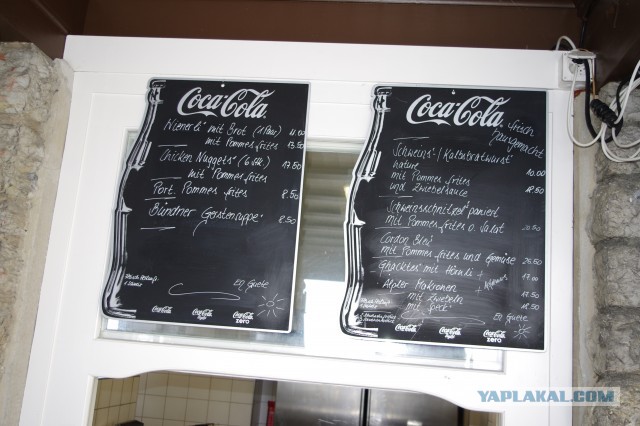 Coca-Cola
Wienerli mit Brot (1 Paar) 11.00
mit Pommes frites 13.50
Chicken Nuggets (6 Stk) 17.50
mit Pommes frites
Port. Pommes frites 8.50
Bündner Gerstensuppe 8.50
En Guete
Coca-Cola
Coca-Cola light
Coca-Cola zero
Coca-Cola
frisch
hausgemacht
Schweins / Kalbsbratwurst
nature 10.00
mit Pommes frites
und Zwiebelsauce 18.50
Schweinsschnitzel paniert
mit Pommes frites o. Salat
Cordon Bleu
mit Pommes frites und Gemüse 26.50
Ghacktes mit Hörnli + 17.00
Älpler Makronen
mit Zwiebeln 17.50
mit Speck 18.50
En Guete
Coca-Cola
Coca-Cola light
Coca-Cola zero
YAPLAKAL.COM